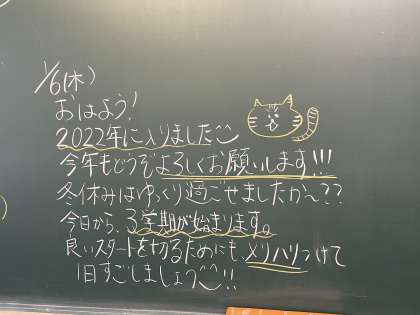 1/6(木)
おはよう!
2022年に入りました
今年もどうぞよろしくお願いします!!!
冬休みはゆっくり過ごせましたか~??
今日から、3学期が始まります。
良いスタートを切るためにも、メリハリつけて
1日すごしましょう!!